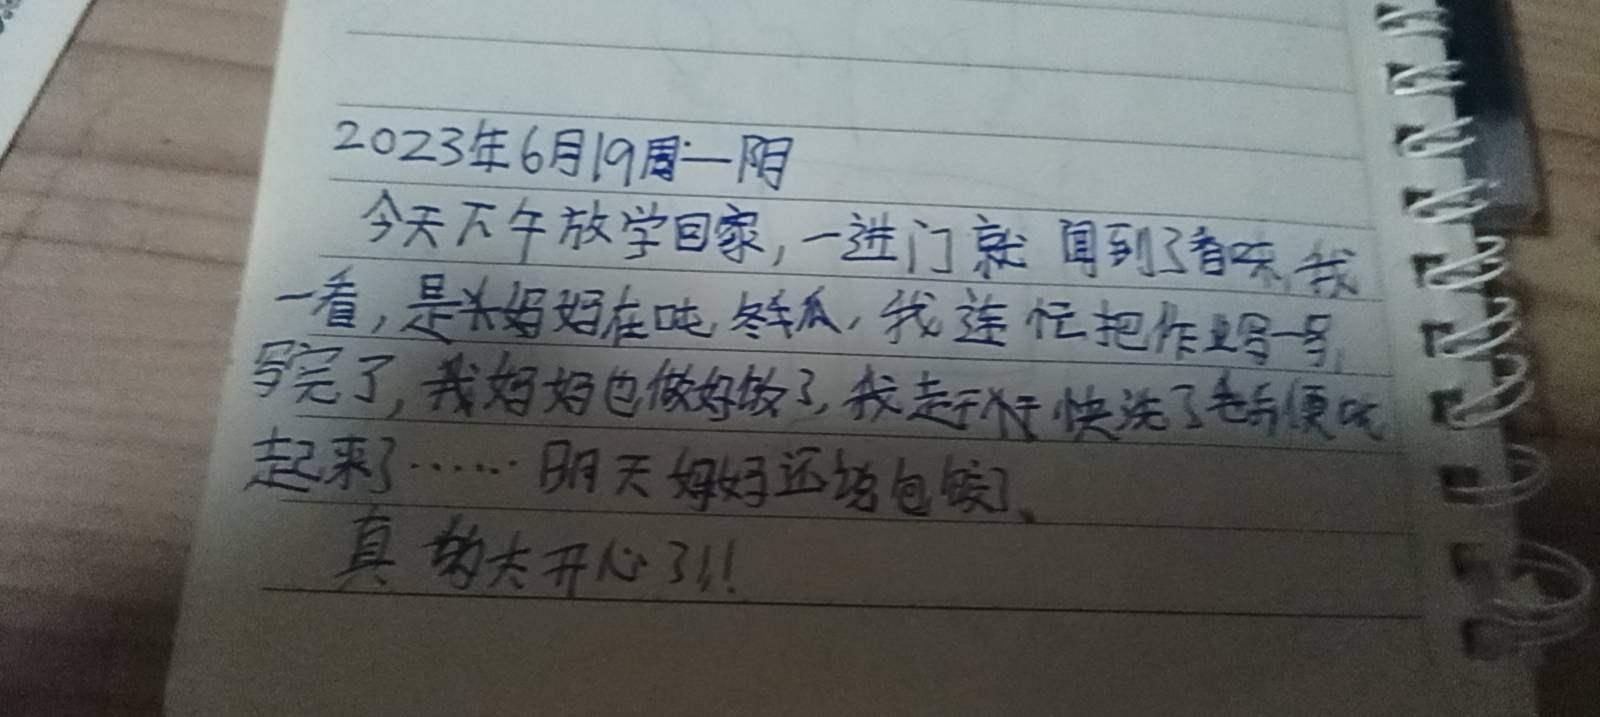 2023年6月19周一阴
今天下午放学回家,一进门就闻到了香味,我
一看,是妈妈在吨冬瓜,我连忙把作业写一写,
写完了,我妈妈也做好饭了,我赶快洗了手便吃
起来了……明天妈妈还说包饺子、
真的太开心了!!!